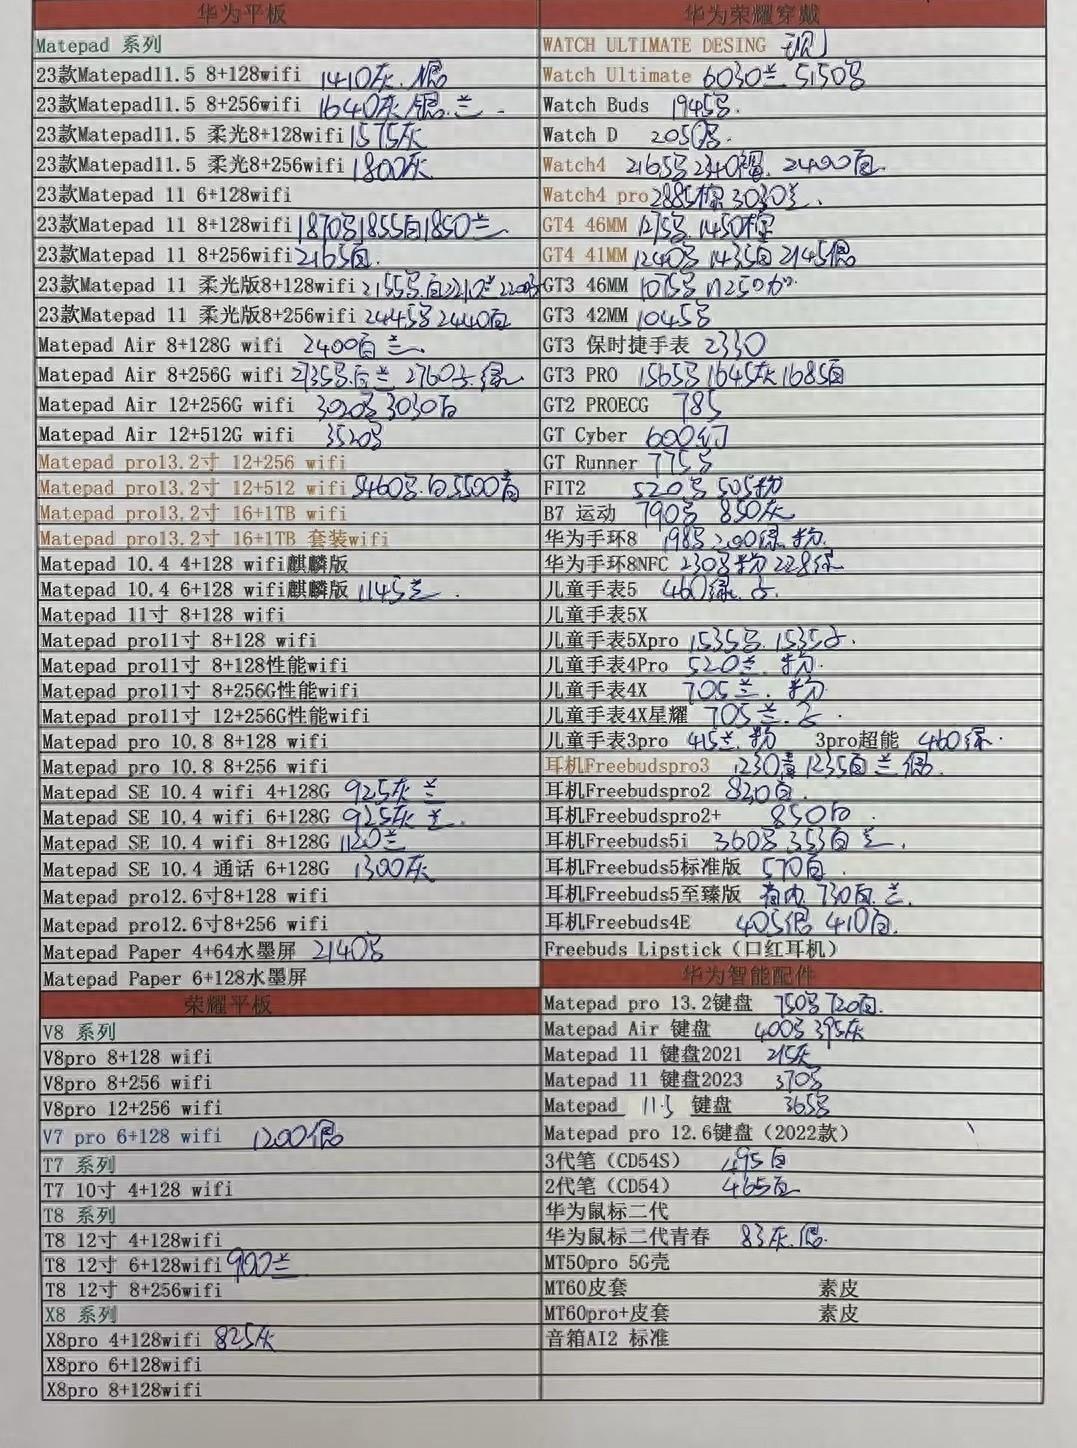 华为平板
Matepad 系列
23款Matepad11.5 8+128wifi 1410灰.银
23款Matepad11.5 8+256wifi 1640灰.银.兰
23款Matepad11.5 柔光8+128wifi 1575灰
23款Matepad11.5 柔光8+256wifi 1800灰
23款Matepad 11 6+128wifi
23款Matepad 11 8+128wifi 1870 1855白1850兰
23款Matepad 11 8+256wifi 2165白.
23款Matepad 11 柔光版8+128wifi 2155
23款Matepad 11 柔光版8+256wifi 2445 2440白
Matepad Air 8+128G wifi 2400白兰
Matepad Air 8+256G wifi 2735 白兰 2760 绿
Matepad Air 12+256G wifi 3020 3030白
Matepad Air 12+512G wifi 3520
Matepad pro13.2寸 12+256 wifi
Matepad pro13.2寸 12+512 wifi 5460 白5500青
Matepad pro13.2寸 16+1TB wifi
Matepad pro13.2寸 16+1TB 套装wifi
Matepad 10.4 4+128 wifi麒麟版
Matepad 10.4 6+128 wifi麒麟版 1145兰
Matepad 11寸 8+128 wifi
Matepad pro11寸 8+128 wifi
Matepad pro11寸 8+128性能wifi
Matepad pro11寸 8+256G性能wifi
Matepad pro11寸 12+256G性能wifi
Matepad pro 10.8 8+128 wifi
Matepad pro 10.8 8+256 wifi
Matepad SE 10.4 wifi 4+128G 925灰兰
Matepad SE 10.4 wifi 6+128G 925灰兰.
Matepad SE 10.4 wifi 8+128G 1120兰
Matepad SE 10.4 通话 6+128G 1300灰
Matepad pro12.6寸8+128 wifi
Matepad pro12.6寸8+256 wifi
Matepad Paper 4+64水墨屏 2140
Matepad Paper 6+128水墨屏
荣耀平板
V8 系列
V8pro 8+128 wifi
V8pro 8+256 wifi
V8pro 12+256 wifi
V7 pro 6+128 wifi 1200银
T7 系列
T7 10寸 4+128 wifi
T8 系列
T8 12寸 4+128wifi
T8 12寸 6+128wifi 900兰
T8 12寸 8+256wifi
X8 系列
X8pro 4+128wifi 825灰
X8pro 6+128wifi
X8pro 8+128wifi
华为荣耀穿戴
WATCH ULTIMATE DESING
Watch Ultimate 6030兰 5150
Watch Buds 1945
Watch D 2050
Watch4 2165 2340 2400白.
Watch4 pro 2885棕3030兰.
GT4 46MM 1275 1450棕
GT4 41MM 1240 1435白 2145银
GT3 46MM 1075 1125
GT3 42MM 1045
GT3 保时捷手表 2330
GT3 PRO 1565 1645灰 1685白
GT2 PROECG 785
GT Cyber 600
GT Runner 775
FIT2 520 505粉
B7 运动 790 850灰
华为手环8 198 200绿.粉.
华为手环8NFC 230 粉 228绿
儿童手表5 460绿.
儿童手表5X
儿童手表5Xpro 1535 1535
儿童手表4Pro 520兰.粉.
儿童手表4X 705兰.粉
儿童手表4X星耀 705兰.
儿童手表3pro 415兰.粉 3pro超能 460绿.
耳机Freebudspro3 1230青 1235白兰银.
耳机Freebudspro2 820白.
耳机Freebudspro2+ 850白
耳机Freebuds5i 360 353白兰.
耳机Freebuds5标准版 570白.
耳机Freebuds5至臻版 730白.兰.
耳机Freebuds4E 405银 410白.
Freebuds Lipstick（口红耳机）
华为智能配件
Matepad pro 13.2键盘 750 720白.
Matepad Air 键盘 400 395灰
Matepad 11 键盘2021 215灰
Matepad 11 键盘2023 370
Matepad 11.5 键盘 365
Matepad pro 12.6键盘（2022款）
3代笔（CD54S） 495白
2代笔（CD54） 465白
华为鼠标二代
华为鼠标二代青春 83灰.银.
MT50pro 5G壳
MT60皮套 素皮
MT60pro+皮套 素皮
音箱AI2 标准